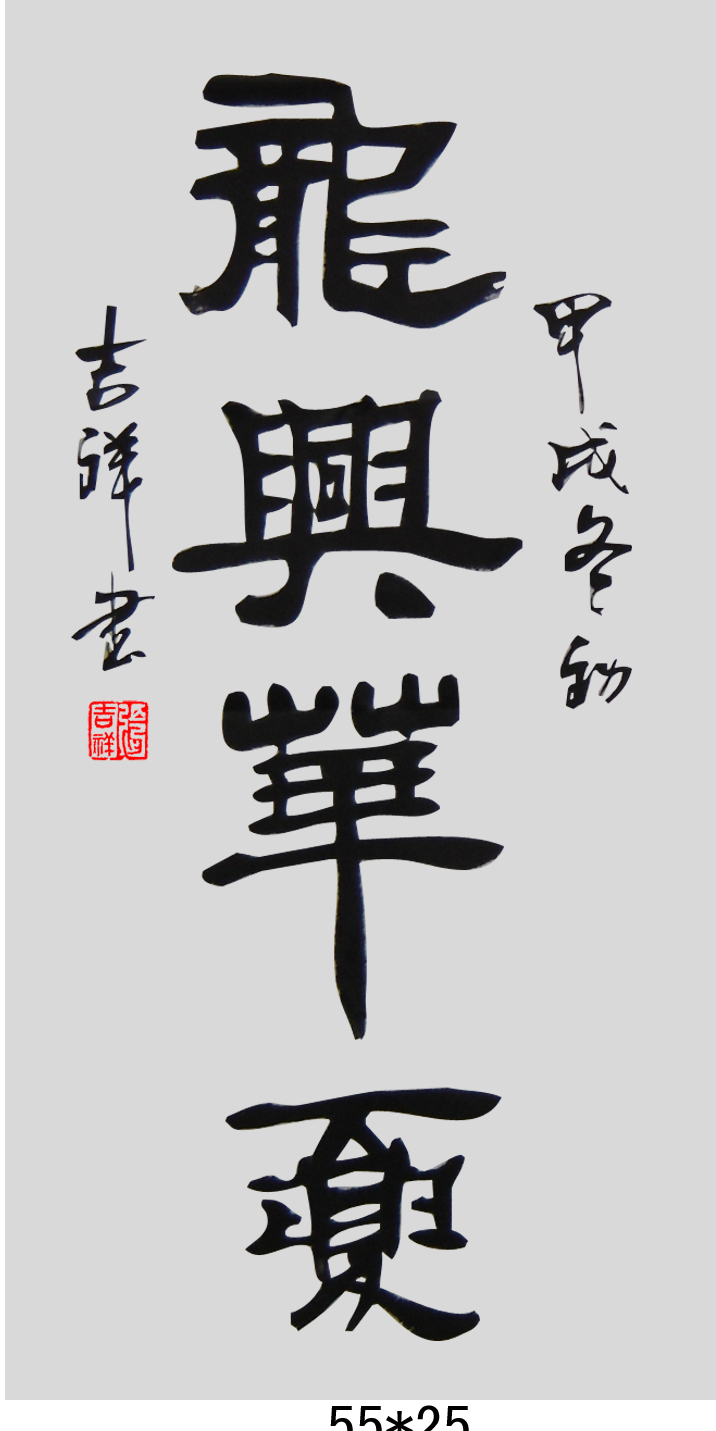 甲戌冬初
龍興華夏
吉祥書
張吉祥
55*25